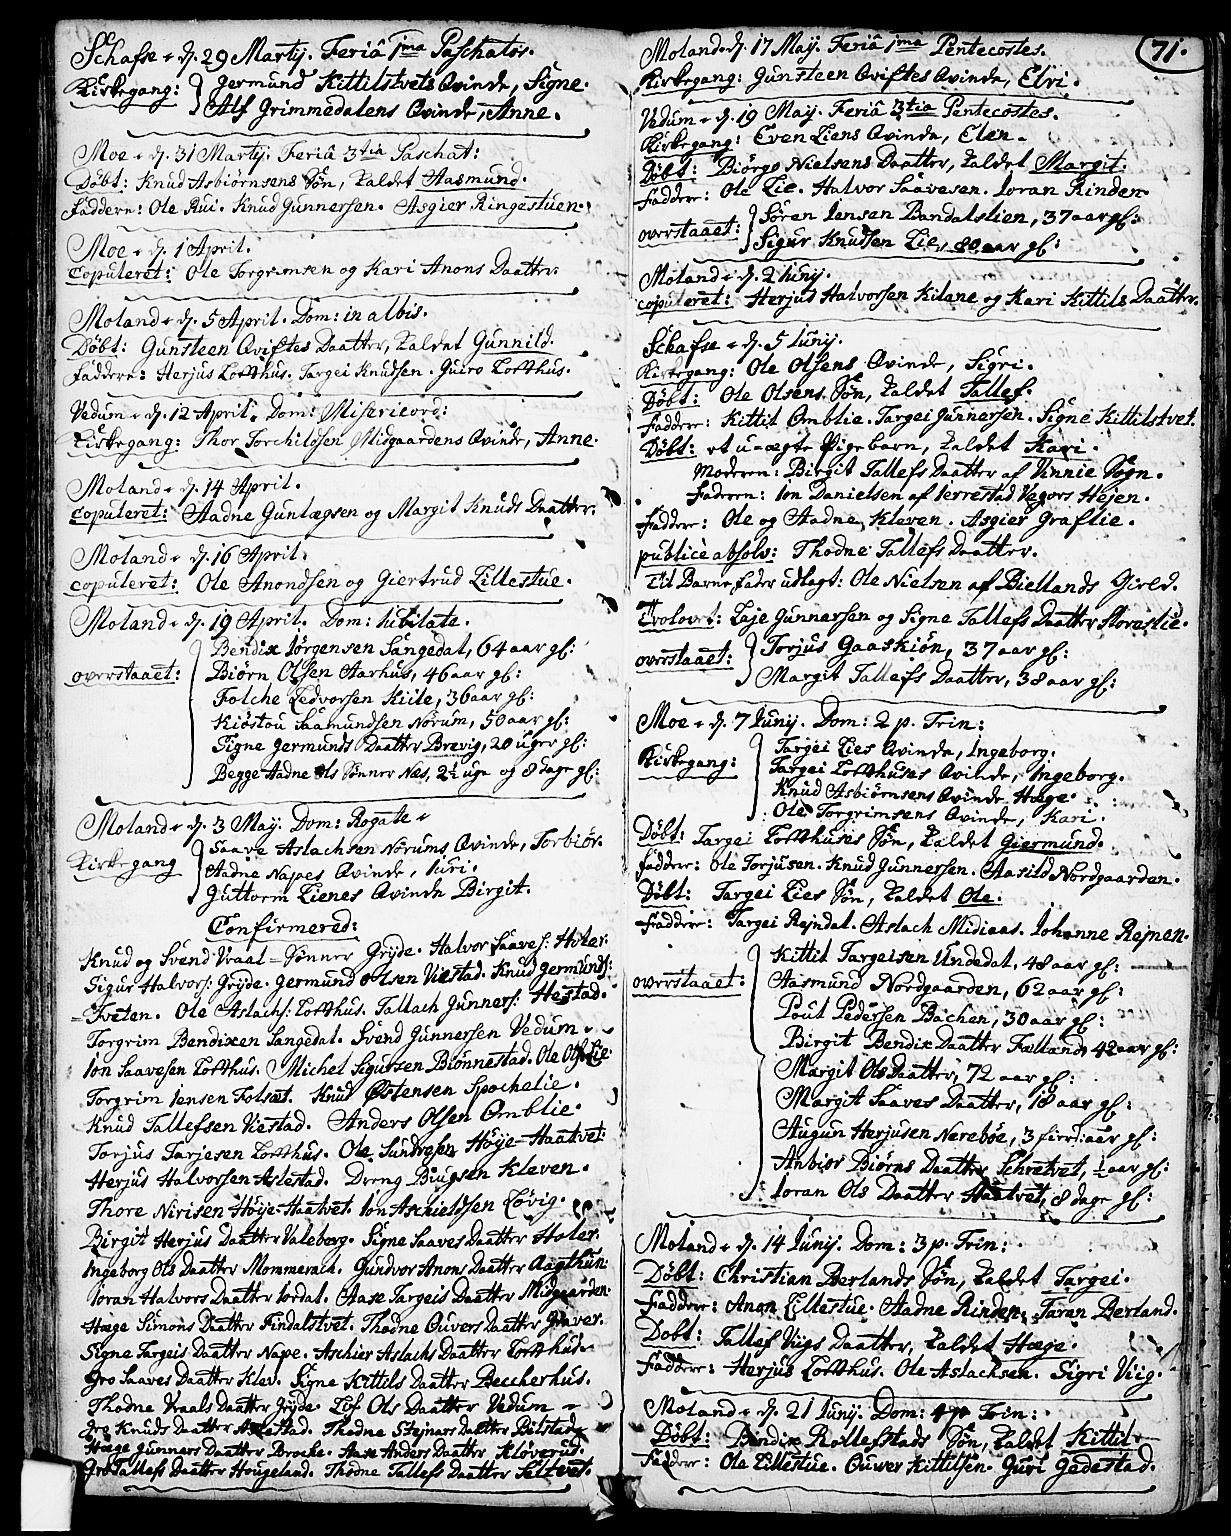 Schafse d. 29 Martij. Feriâ 1ma Paschatos.
Kirkegang: Germund Kittilstvets Qvinde, Signe.
Alf Grimmedalens Qvinde, Anne.
Moe d. 31 Martij. Feriâ 3tia Paschat:
Döbt: Knud Asbiörnsens Sön, kaldet Aasmund.
Faddern: Ole Rui. Knud Gunnersen. Asgier Ringestuen.
Moe d. 1 April.
Copuleret: Ole Torgrimsen og Kari Anons Daatter.
Moland d. 5 April. Dom: in albis.
Döbt: Gunsteen Qviftes Daatter, kaldet Gunnild.
Faddere: Herjus Loffthus. Targei Knudsen. Guro Loffthus.
Vedum d. 12 April. Dom: Misericord:
Kirkegang: Thor Torchildsen Midgaardens Qvinde, Anne.
Moland d. 14 April.
Copuleret: Aadne Gunlægsen og Margit Knuds Daatter.
Moland d. 16 April.
Copuleret: Ole Anondsen og Giertrud Lillestue.
Moland d. 19 April. Dom: Iubilate.
overstaaet: Bendix Jörgensen Sangedal, 64 aar gl:
Biörn Olsen Aarhus, 46 aar gl:
Folche Ledvorsen Kiile, 36 aar gl:
Kiöstou Saamundsen Norum, 50 aar gl:
Signe Germunds Daatter Brevig, 20 uger gl:
Begge Aadne Ols Sönner Næs, 2½ uge og 8 dage gl:
Moland d. 3 May. Dom: Rogate
Kirkegang Saave Aslachsen Norums Qvinde, Torbiör.
Aadne Napes Qvinde, Iuri.
Guttorm Lienes Qvinde Birgit.
Confirmered:
Knud og Svend Vraal-Sönner Gryde. Halvor Saaves: Holer.
Sigur Halvors: Gryde. Germund Olsen Viestad. Knud Germunds:
Tveten. Ole Aslachs: Loffthus. Tallach Gunners: Hestad.
Torgrim Bendixen Sangedal. Svend Gunnersen Vedum.
Ion Saavesen Loffthus. Michel Sigursen Biönnestad. Ole Ols: Lie.
Torgrim Iensen Folsæt. Knud Östensen Spochelie.
Knud Tallefsen Viestad. Anders Olsen Omblie.
Torjus Tarjesen Loffthus. Ole Sundresen Höye-Haatvet.
Herjus Halvorsen Aslestad. Dreng Biugsen Kleven.
Thore Nirisen Höije-Haatvet. Ion Aschieldsen Lövig.
Birgit Herjus Daatter Valeberg. Signe Saaves Daatter Holer.
Ingeborg Ols Daatter Mommerach. Gundvor Anons Daatter Aagthun.
Ioran Halvors Daatter Iordal. Aase Targeis Daatter Midgaarden.
Hæge Simons Daatter Findalstvet. Thodne Ouvers Daatter Graver.
Signe Targeis Daatter Nape. Aschier Aslachs Daatter Loffthus.
Gro Saaves Daatter Klev. Signe Kittils Daatter Beccherhus.
Thodne Vraals Daatter Gryde. Lif Ols Daatter Vedum
Gro Knuds Daatter Thodne Steinars Daatter Bilstad
Hæge Gunners Daatter Brocke. Aase Anders Daatter Klöverud.
Gro Tallefs Daatter Hougeland. Thodne Tallefs Daatter
71.
Moland d. 17 May. Feriâ 1ma Pentecostes.
Kirkegang: Gunsteen Qviftes Qvinde, Elvi.
Vedum d. 19 May. Feriâ 3tia Pentecostes.
Kirkegang: Even Liens Qvinde, Elen.
Döbt: Biörgo Nielsens Daatter, kaldet Margit.
Fadder: Ole Lie. Halvor Saavesen. Ioran Rinden.
overstaaet: Sören Iensen Bandalslien, 37 aar gl:
Sigur Knudsen Lie, 80 aar gl:
Moland d. 2 Iunij.
copuleret: Herjus Halvorsen Kilane og Kari Kittils Daatter.
Schafse d. 5 Iunij.
Kirkegang: Ole Olsens Qvinde, Sigri.
Döbt: Ole Olsens Sön, kaldet Tallef.
Fadder: Kittil Omblie. Targei Gunnersen. Signe Kittilstvet.
Döbt: et u-ægte Pigebarn, kaldet Kari.
Moderen: Birgit Tallefs Daatter af Vinnie Sogn.
Faderen: Ion Danielsen af Ierrestad Vegors Hejen.
Fadder: Ole og Aadne Kleven. Asgier Graflie.
publice absolv: Thodne Tallefs Daatter.
Til Barnefader udlagt: Ole Nielsen af Biellands Gield.
Trolovet: Laje Gunnersen og Signe Tallefs Daatter Storeslie.
overstaaet: Torjus Gaaskiön, 37 aar gl:
Margit Tallefs Daatter, 38 aar gl:
Moe d. 7 Iunij. Dom: 2 p. Trin:
Kirkegang: Targei Lies Qvinde, Ingeborg.
Targei Loffthuses Qvinde, Ingeborg.
Knud Asbiörnsens Qvinde, Hæge.
Ole Torgrimsens Qvinde, Kari.
Döbt: Targei Loffthuses Sön, kaldet Giermund.
Fadder: Ole Torjusen. Knud Gunnersen. Aasild Nordgaarden.
Döbt: Targei Lies Sön, kaldet Ole.
Fadder: Targei Rejndal. Aslach Midiaas. Iohanne Rejnen.
overstaaet: Kittil Targeisen Undedal, 48 aar gl:
Aasmund Nordgaarden, 62 aar gl:
Poul Pedersen Bachen, 30 aar gl:
Birgit Bendix Daatter Falland, 42 aar gl:
Margit Ols Daatter, 72 aar gl:
Margit Saaves Daatter, 18 aar gl:
Augun Herjusen Nereböe, 3 fierd: aar gl:
Anbior Biörns Daatter Schretvet, ½ aar gl:
Ioran Ols Daatter Haatvet, 8 dage gl:
Moland d. 14 Iunij. Dom: 3 p. Trin:
Döbt: Christian Berlands Sön, kaldet Targei.
Fadder: Anon Lillestue. Aadne Rinden. Taran Berland.
Döbt: Tallef Viigs Daatter, kaldet Hæge.
Fadder: Herjus Loffthus. Ole Aslachsen. Sigri Viig.
Moland d. 21 Iunij. Dom: 4 p. Trin:
Döbt: Bendix Rollefstads Sön, kaldet Kittil.
Fadder: Ole Lillestue. Ouver Kittilsen. Guri Gedestad.